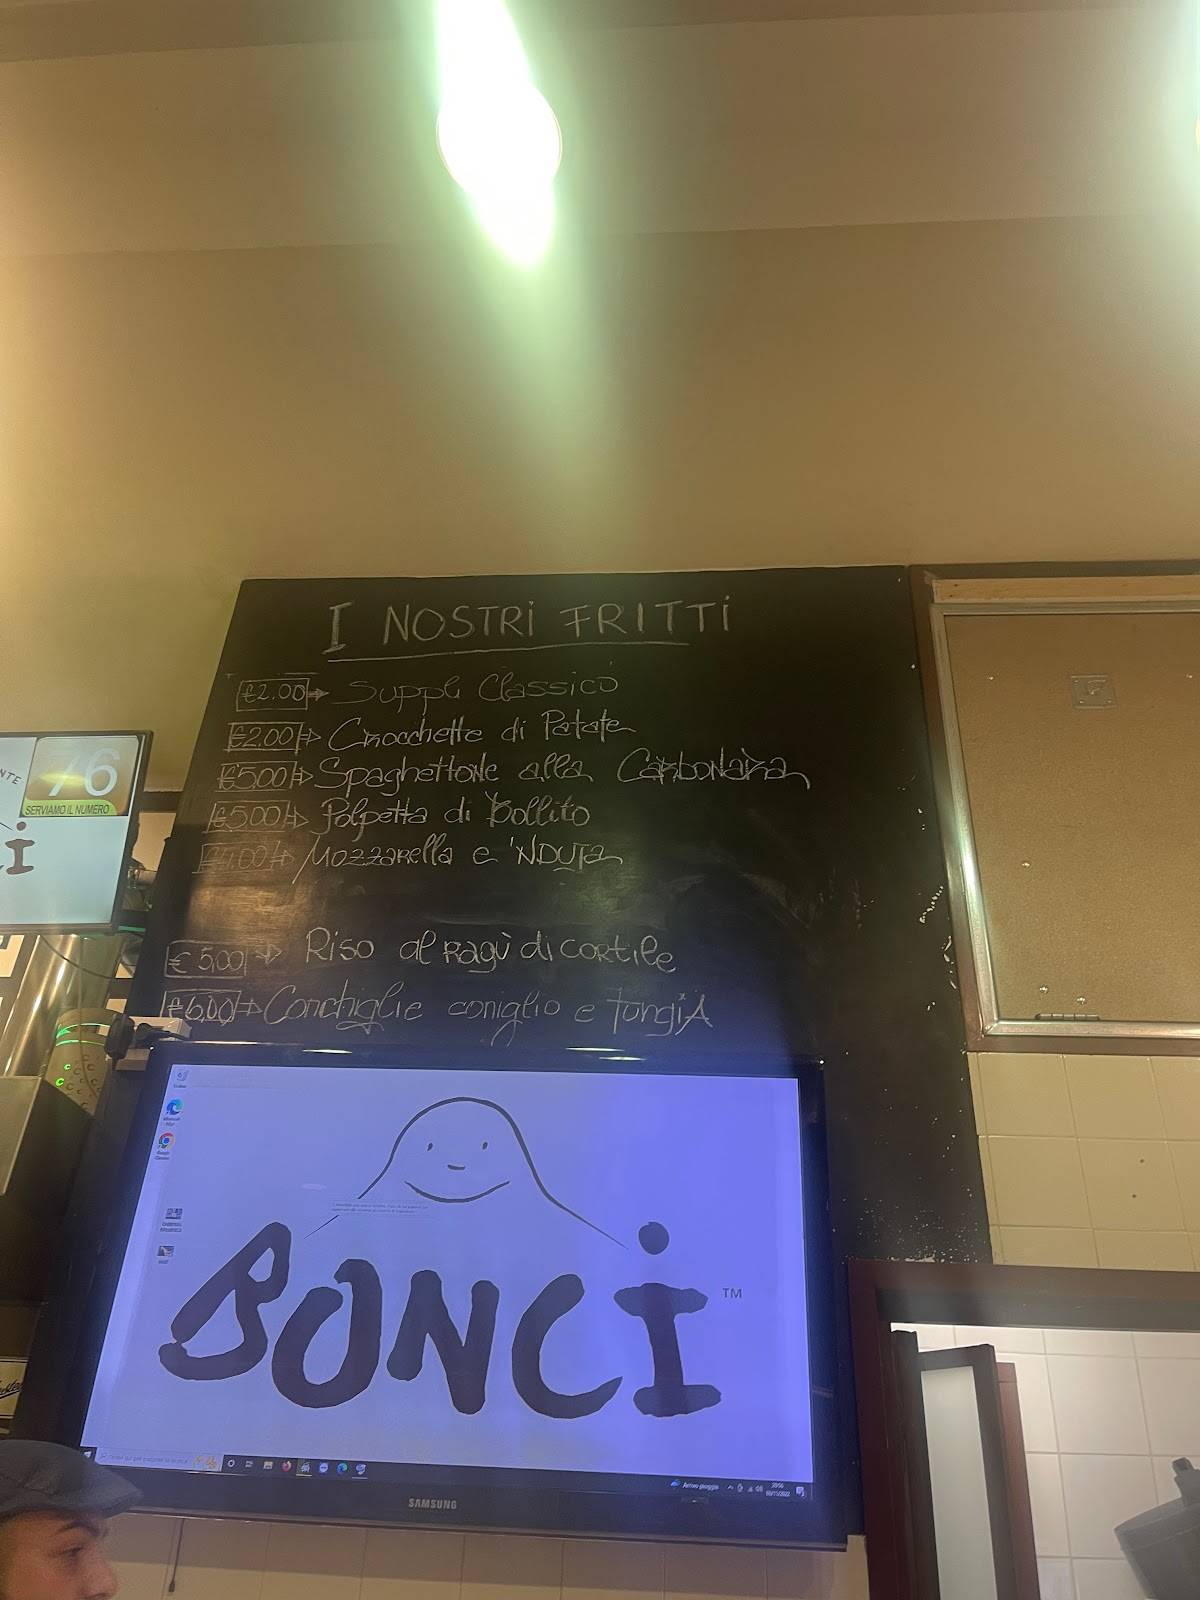 I NOSTRI FRITTI
€2.00 → Supplì Classico
€2.00 → Crocchette di Patate
€5.00 → Spaghettone alla Carbonara
€5.00 → Polpetta di Bollito
Mozzarella e 'NDUJA
€ 5,00 → Riso al Ragù di cortile
€6,00 → Conchiglie coniglio e fungiA
76
SERVIAMO IL NUMERO
BONCI
TM
SAMSUNG